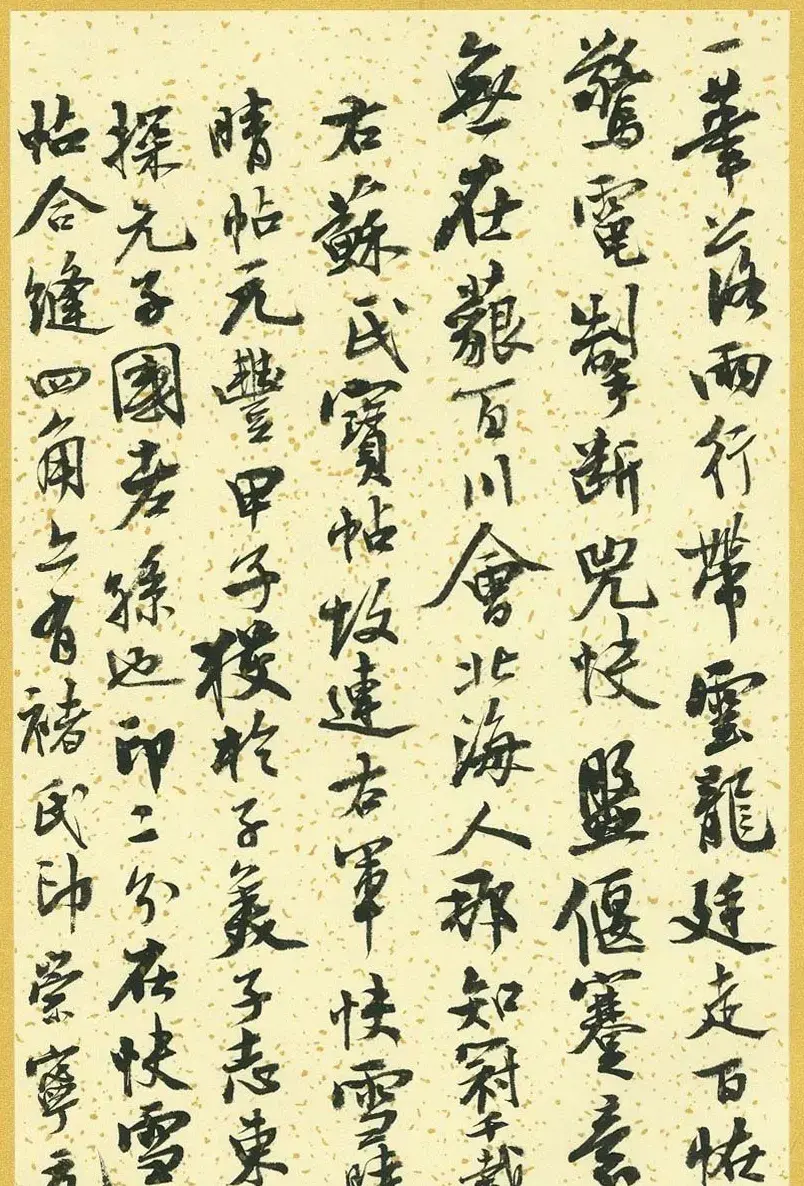 一筆落兩行帶雲龍廷走百怪
驚電掣斷兕快盤偃蹇意
無在藐百川會北海人那知冠千載
右蘇氏寶帖故連右軍快雪時
晴帖元豐甲子獲於子美子志東
探元子國老孫也印二分在快雪
帖合縫四角亦有褚氏印崇寧元